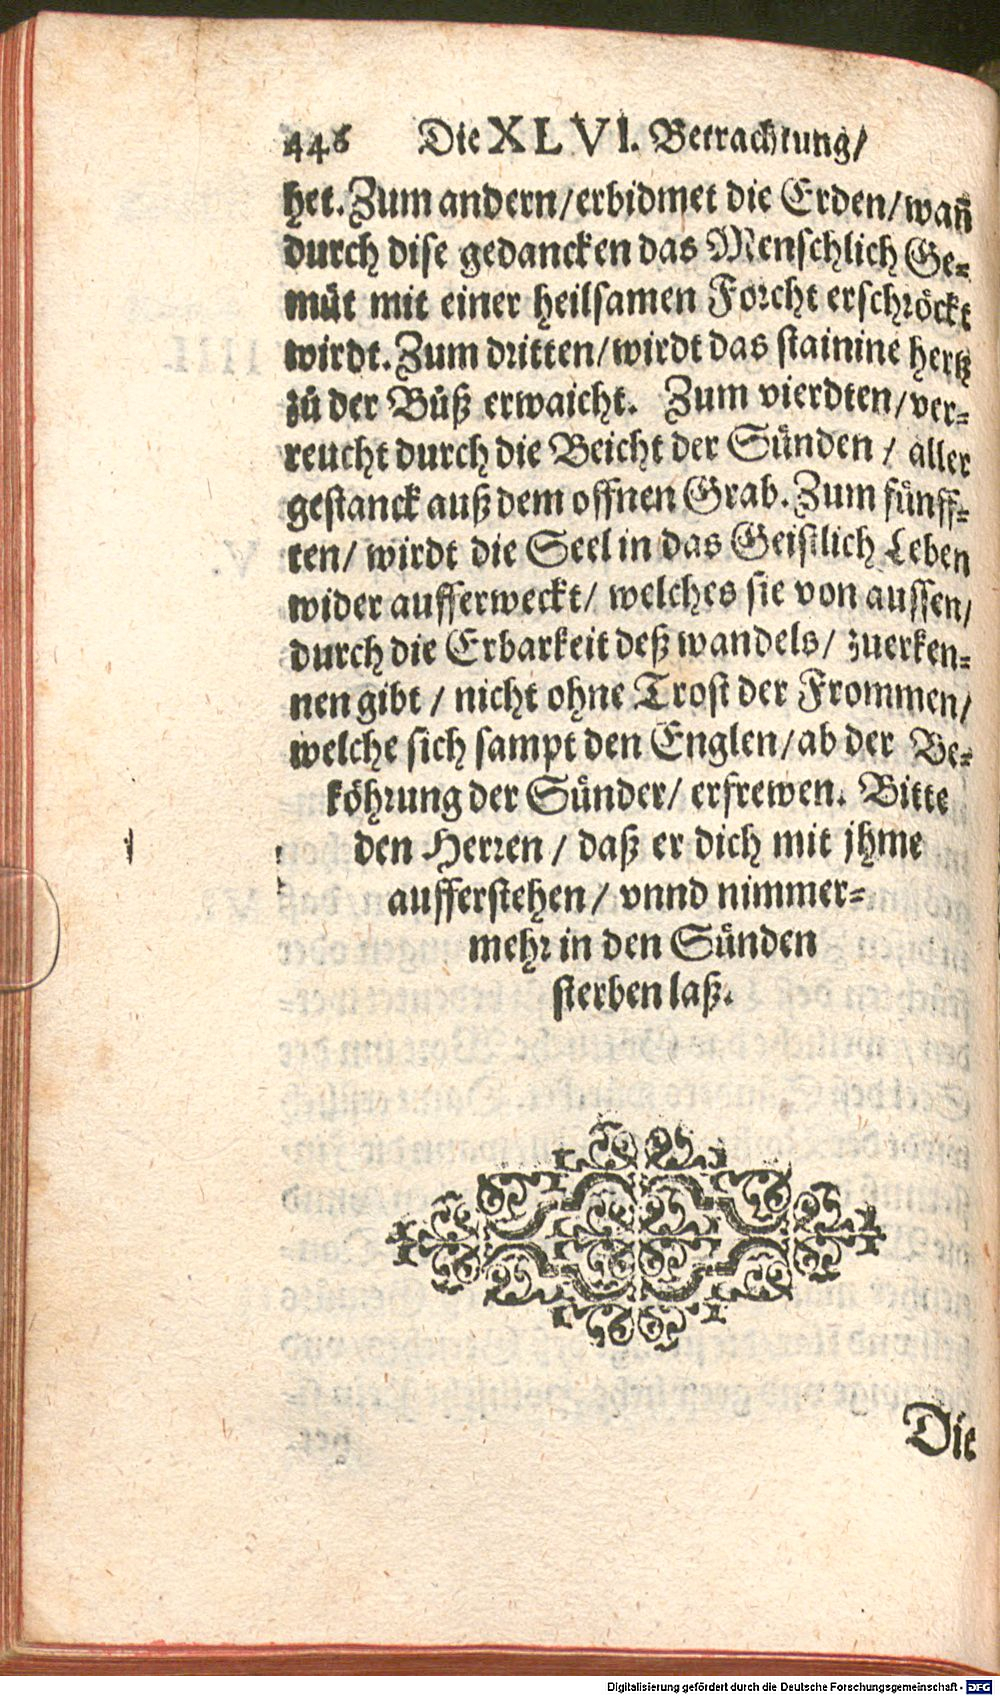 446 Die XLVI. Betrachtung/
het. Zum andern/erbidmet die Erden/wañ
durch dise gedancken das Menschlich Ge-
müt mit einer heilsamen Forcht erschröckt
wirdt. Zum dritten/wirdt das stainine hertz
zů der Bůß erwaicht. Zum vierdten/ver-
reucht durch die Beicht der Sünden / aller
gestanck auß dem offnen Grab. Zum fünff-
ten/ wirdt die Seel in das Geistlich Leben
wider aufferweckt/ welches sie von aussen/
durch die Erbarkeit deß wandels/ zuerken-
nen gibt / nicht ohne Trost der Frommen/
welche sich sampt den Englen/ab der Be-
köhrung der Sünder/ erfrewen. Bitte
den Herren / daß er dich mit jhme
aufferstehen / vnnd nimmer-
mehr in den Sünden
sterben laß.
Die
Digitalisierung gefördert durch die Deutsche Forschungsgemeinschaft - DFG